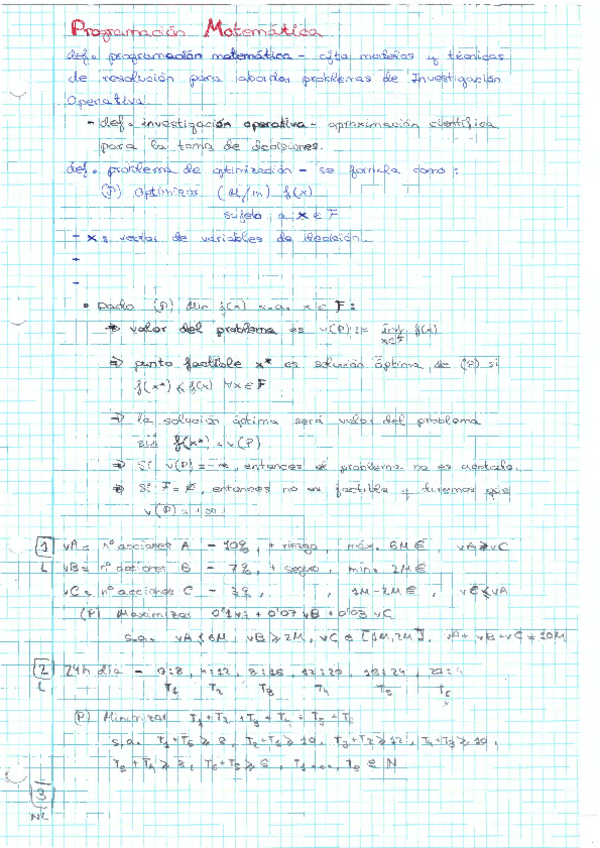 Programación Matemática
def. programación matemática - cjta modelos y técnicas
de resolución para abordar problemas de Investigación
Operativa.
- def. investigación operativa - aproximación científica
para la toma de decisiones.
def. problema de optimización - se formula como:
(P) Optimizar (M/m) f(x)
sujeto a x ∈ F
- x ≡ vector de variables de decisión
-
-
• Dado (P) Min f(x) s.a. x ∈ F:
⇒ valor del problema es v(P) := inf f(x)
x∈F
⇒ punto factible x* es solución óptima de (P) si
f(x*) ≤ f(x) ∀x ∈ F
⇒ la solución óptima será valor del problema
sii f(x*) = v(P)
⇒ Si v(P) = -∞, entonces el problema no es acotado.
⇒ Si F = ∅, entonces no es factible y diremos que
v(P) = +∞
1 vA ≡ nº acciones A - 10%, + riesgo, máx. 6M€, vA ≥ vC
L vB ≡ nº acciones B - 7%, + seguro, min. 2M€
vC ≡ nº acciones C - 3%, , 1M-2M€, vC ≤ vA
(P) Maximizar 0'1vA + 0'07 vB + 0'03 vC
s.a. vA ≤ 6M, vB ≥ 2M, vC ∈ [1M, 2M], vA + vB + vC ≤ 10M
2 24h día - 0:8, 4:12, 8:16, 12:20, 16:24, 20:4
L T1 T2 T3 T4 T5 T6
(P) Minimizar T1 + T2 + T3 + T4 + T5 + T6
s.a. T1 + T6 ≥ 8, T2 + T1 ≥ 10, T3 + T2 ≥ 12, T4 + T3 ≥ 10,
T5 + T4 ≥ 8, T6 + T5 ≥ 6, T1, ..., T6 ∈ N
3
NL